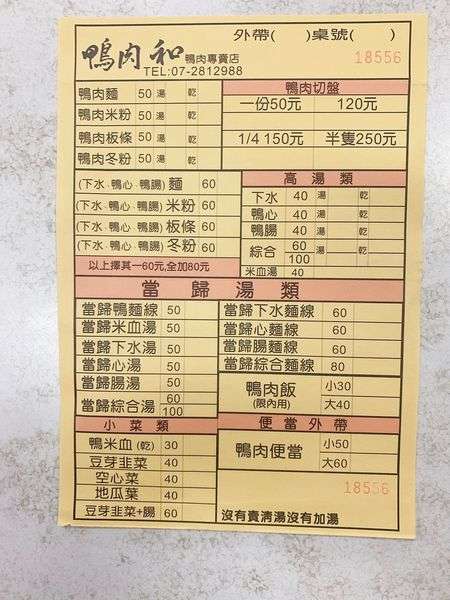 外帶(　　)桌號(　　)
鴨肉和 鴨肉專賣店
TEL:07-2812988
18556
鴨肉麵 50 湯 乾
鴨肉米粉 50 湯 乾
鴨肉板條 50 湯 乾
鴨肉冬粉 50 湯 乾
鴨肉切盤
一份50元 120元
1/4 150元 半隻250元
(下水、鴨心、鴨腸) 麵 60
(下水、鴨心、鴨腸) 米粉 60
(下水、鴨心、鴨腸) 板條 60
(下水、鴨心、鴨腸) 冬粉 60
以上擇其一60元,全加80元
高湯類
下水 40 湯 乾
鴨心 40 湯 乾
鴨腸 40 湯 乾
綜合 60 100 湯 乾
米血湯 40
當歸湯類
當歸鴨麵線 50
當歸米血湯 50
當歸下水湯 50
當歸心湯 50
當歸腸湯 50
當歸綜合湯 60 100
當歸下水麵線 60
當歸心麵線 60
當歸腸麵線 60
當歸綜合麵線 80
鴨肉飯 (限內用) 小30 大40
小菜類
鴨米血(乾) 30
豆芽韭菜 40
空心菜 40
地瓜葉 40
豆芽韭菜+腸 60
便當外帶
鴨肉便當 小50 大60
18556
沒有賣清湯沒有加湯